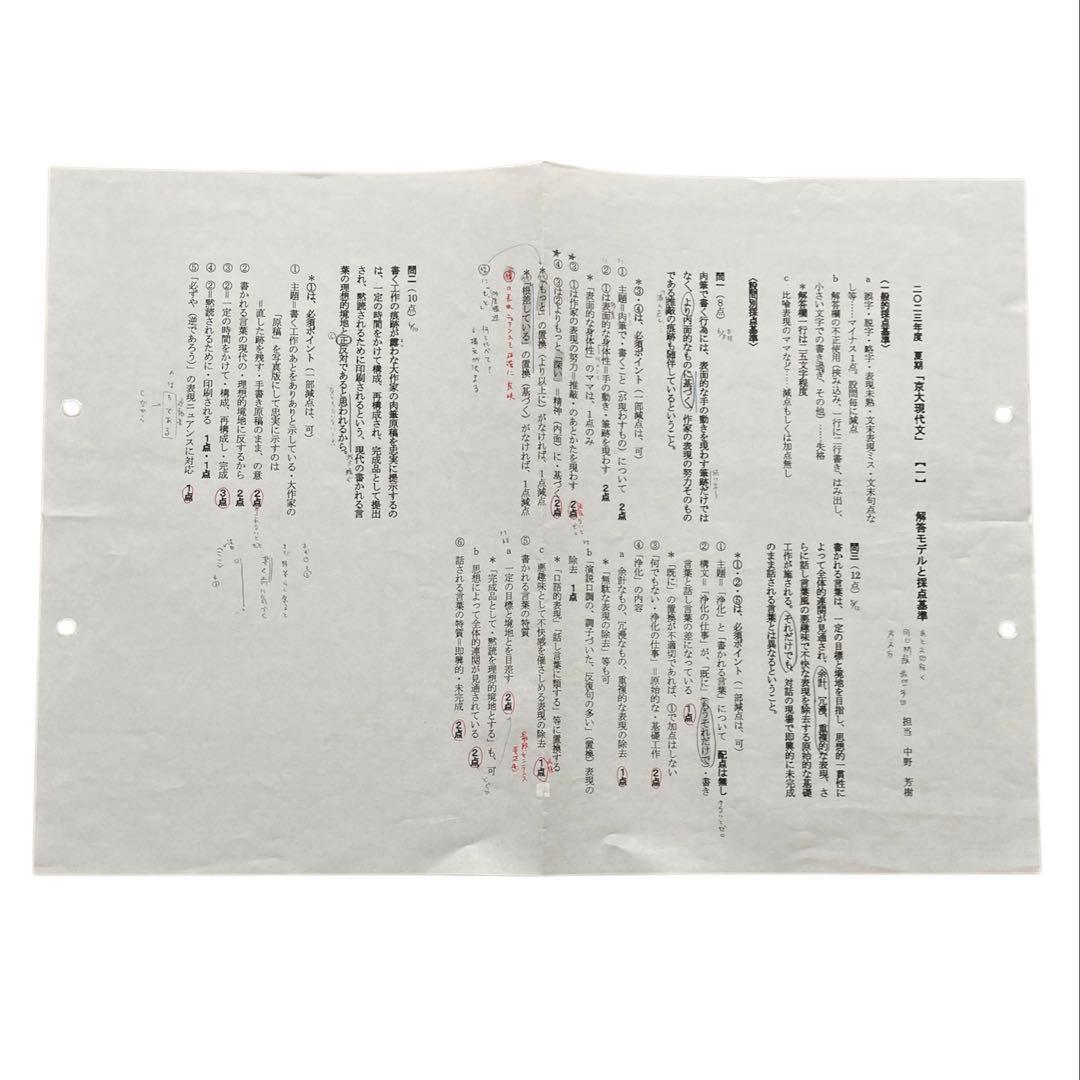 二〇二三年度　夏期「京大現代文」　【一】　解答モデルと採点基準
担当　中野　芳樹
〈一般的採点基準〉
a　誤字・脱字・略字・表現未熟・文末表現ミス・文末句点な
し等……マイナス1点。設問毎に減点
b　解答欄の不正使用（挟み込み、一行に二行書き、はみ出し、
小さい文字での書き過ぎ、その他）……失格
＊解答欄一行は二五文字程度
c　比喩表現のママなど……減点もしくは加点無し
〈設問別採点基準〉
問一（8点）
肉筆で書く行為には、表面的な手の動きを現わす筆跡だけでは
なく、より内面的なものに基づく、作家の表現の努力そのもの
である推敲の痕跡も随伴しているということ。
＊③・④は、必須ポイント（一部減点は、可）
①　主題＝肉筆で・書くこと（が現わすもの）について　2点
②　①は表面的な身体性＝手の動き・筆跡を現わす　2点
＊「表面的な身体性」のママは、1点のみ
★③　①は作家の表現の努力＝推敲・のあとかたを現わす　2点
★④　③は②よりもっと「深い」＝精神（内面）に・基づく　2点
＊「もっと」の置換（より以上に）がなければ、1点減点
＊「根差している」の置換（基づく）がなければ、1点減点
問二（10点）
書く工作の痕跡が露わな大作家の肉筆原稿を忠実に提示するの
は、一定の時間をかけて構成、再構成され、完成品として提出
され、黙読されるために印刷されるという、現代の書かれる言
葉の理想的境地と正反対であると思われるから。
＊①は、必須ポイント（一部減点は、可）
①　主題＝書く工作のあとをありありと示している・大作家の
「原稿」を写真版にして忠実に示すのは
＝直した跡を残す・手書き原稿のまま、の意　2点
②　書かれる言葉の現代の・理想的境地に反するから　2点
③　②＝一定の時間をかけて・構成、再構成し・完成　3点
④　②＝黙読されるために・印刷される　1点・1点
⑤　「必ずや（逆であろう）」の表現ニュアンスに対応　1点
問三（12点）
書かれる言葉は、一定の目標と境地を目指し、思想的一貫性に
よって全体的連関が見通され、余計、冗漫、重複的な表現、さ
らに話し言葉風の悪趣味で不快な表現を除去する原始的な基礎
工作が施される。それだけでも、対話の現場で即興的に未完成
のまま話される言葉とは異なるということ。
＊①・②・⑤は、必須ポイント（一部減点は、可）
①　主題＝「浄化」と「書かれる言葉」について　配点は無し
②　構文＝「浄化の仕事」が、「既に」（もうそれだけで）・書き
言葉と話し言葉の差になっている　1点
＊「既に」の置換が不適切であれば、①で加点はしない
③　「何でもない・浄化の仕事」＝原始的な・基礎工作　2点
④　「浄化」の内容
a　余計なもの、冗漫なもの、重複的な表現の除去　1点
＊「無駄な表現の除去」等も可
b　「演説口調の、調子づいた、反復句の多い」（置換）表現の
除去　1点
＊「口語的表現」「話し言葉に類する」等に置換する
c　悪趣味として不快感を催さしめる表現の除去　1点
⑤　書かれる言葉の特質
a　一定の目標と境地とを目差す　2点
＊「完成品として・黙読を理想的境地とする」も、可
b　思想によって全体的連関が見通されている　2点
⑥　話される言葉の特質＝即興的・未完成　2点